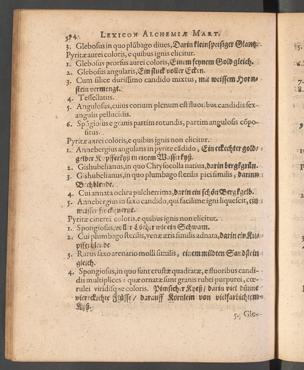 394. LEXICON ALCHEMIÆ MART.
3. Glebosus in quo plūbago diues, Darin kleinspeisiger Glantz.
Pyritæ aurei coloris, e quibus ignis elicitur.
1. Glebosus prorsus aurei coloris, Einem feynem Gold gleich.
2. Glebosus angularis, Ein stuck voller Ecken.
3. Cum silice durissimo candido mixtus, mit weissem Horn-
stein vermengt.
4. Tessellatus.
5. Angulosus, cuius corium plenum est fluoribus candidis sex-
angulis pellucidis.
6. Spōgiosus granis partim rotundis, partim angulosis cōpo-
situs.
Pyritæ aurei coloris, e quibus ignis non elicitur.
1. Annebergius angulatus in pyrite cādido, Ein eckechter gold-
gelber Kupfferkyß in einem Wasserkyß.
2. Gishubelianus, in quo Chrysocolla natiua, darin berckgrün.
3. Gishubelianus, in quo plumbago sterilis pici similis, darinn
Bechblende.
4. Cui annata ochra pulcherrima, darin ein schön Berckgelb.
5. Annebergius in saxo candido, qui facilime igni liquescit, ein
Pyritæ cinerei coloris, e quibus ignis non elicitur.
1. Spongiosus, voller Löcher wie ein Schwam.
2. Cui plumbago sterilis, venæ æris similis adnata, darin ein Ku-
3. Rarus saxo arenario molli similis, einem milden Sandstein
gleich.
4. Spongiosus, in quo sunt crustæ quadratæ, e fluoribus candi-
dis multiplices: quæ ornatæ sunt granis rubei purpurei, cœ-
rulei viridisque coloris. Kyeß, darin viel dünne
viereckechte Flüsse, darauff Körnlein von vielfarbichtem
Kyß.
5. Glo-